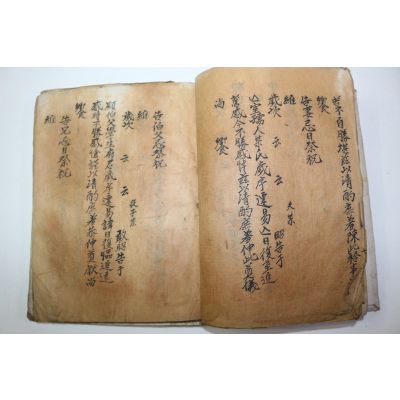 不自勝堪玆以清酌庶羞陳此
饗
告妻忌日祭祝
維
歲次 云 云 夫某 昭告于
亡室孺人某氏歲序遷易亡日復至追
感今不勝感愴玆以清酌庶羞伸此奠儀
尙 饗
告伯父忌祭祝
維
歲次 云 云 從子某 敢昭告于
顯伯父學生府君歲序遷易諱日復臨追遠
感時不勝感愴玆以清酌庶羞恭伸奠獻尙
饗
告兄忌日祭祝
維